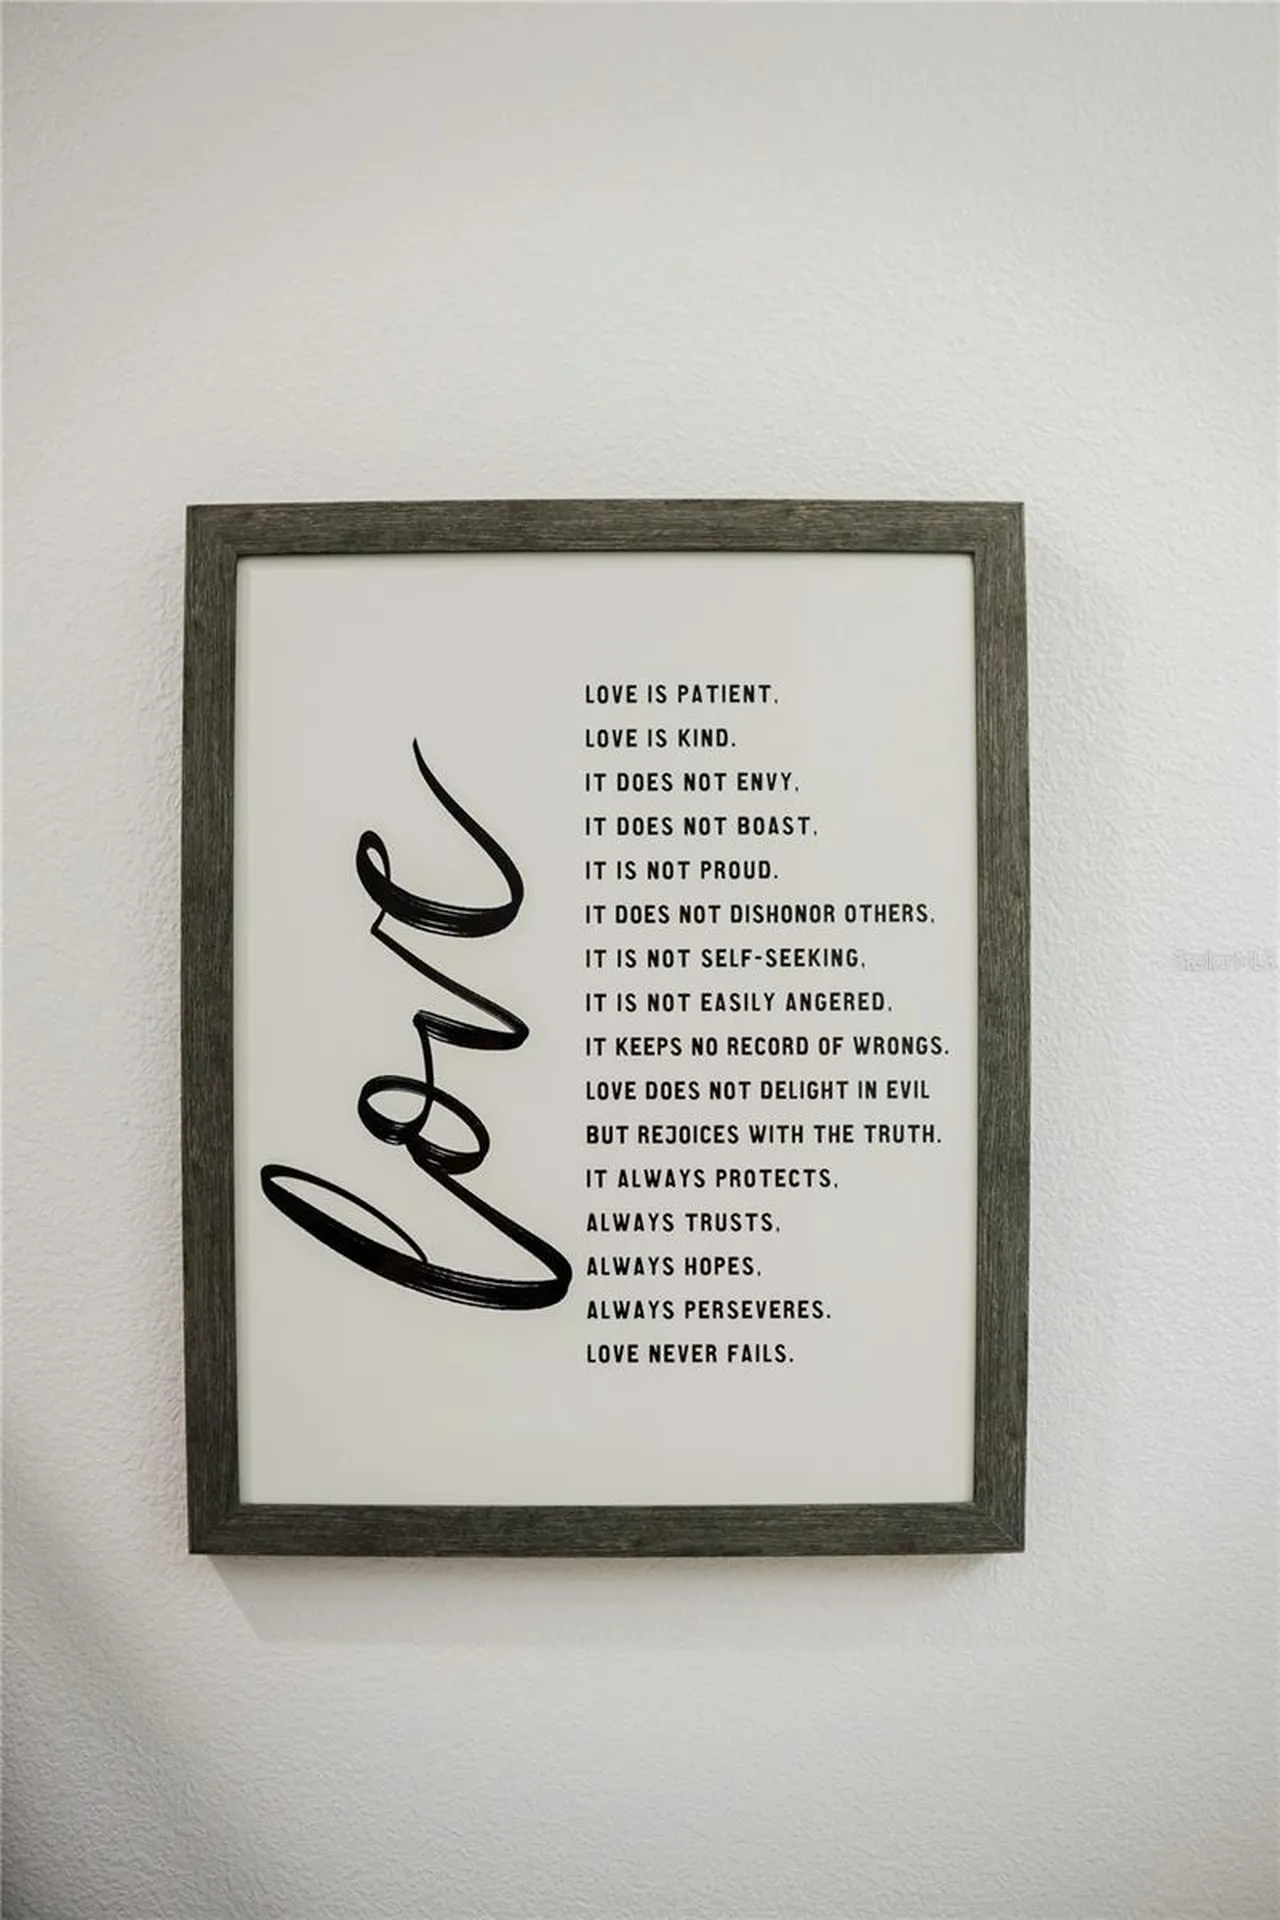 love
LOVE IS PATIENT,
LOVE IS KIND.
IT DOES NOT ENVY,
IT DOES NOT BOAST,
IT IS NOT PROUD.
IT DOES NOT DISHONOR OTHERS,
IT IS NOT SELF-SEEKING,
IT IS NOT EASILY ANGERED,
IT KEEPS NO RECORD OF WRONGS.
LOVE DOES NOT DELIGHT IN EVIL
BUT REJOICES WITH THE TRUTH.
IT ALWAYS PROTECTS,
ALWAYS TRUSTS,
ALWAYS HOPES,
ALWAYS PERSEVERES.
LOVE NEVER FAILS.